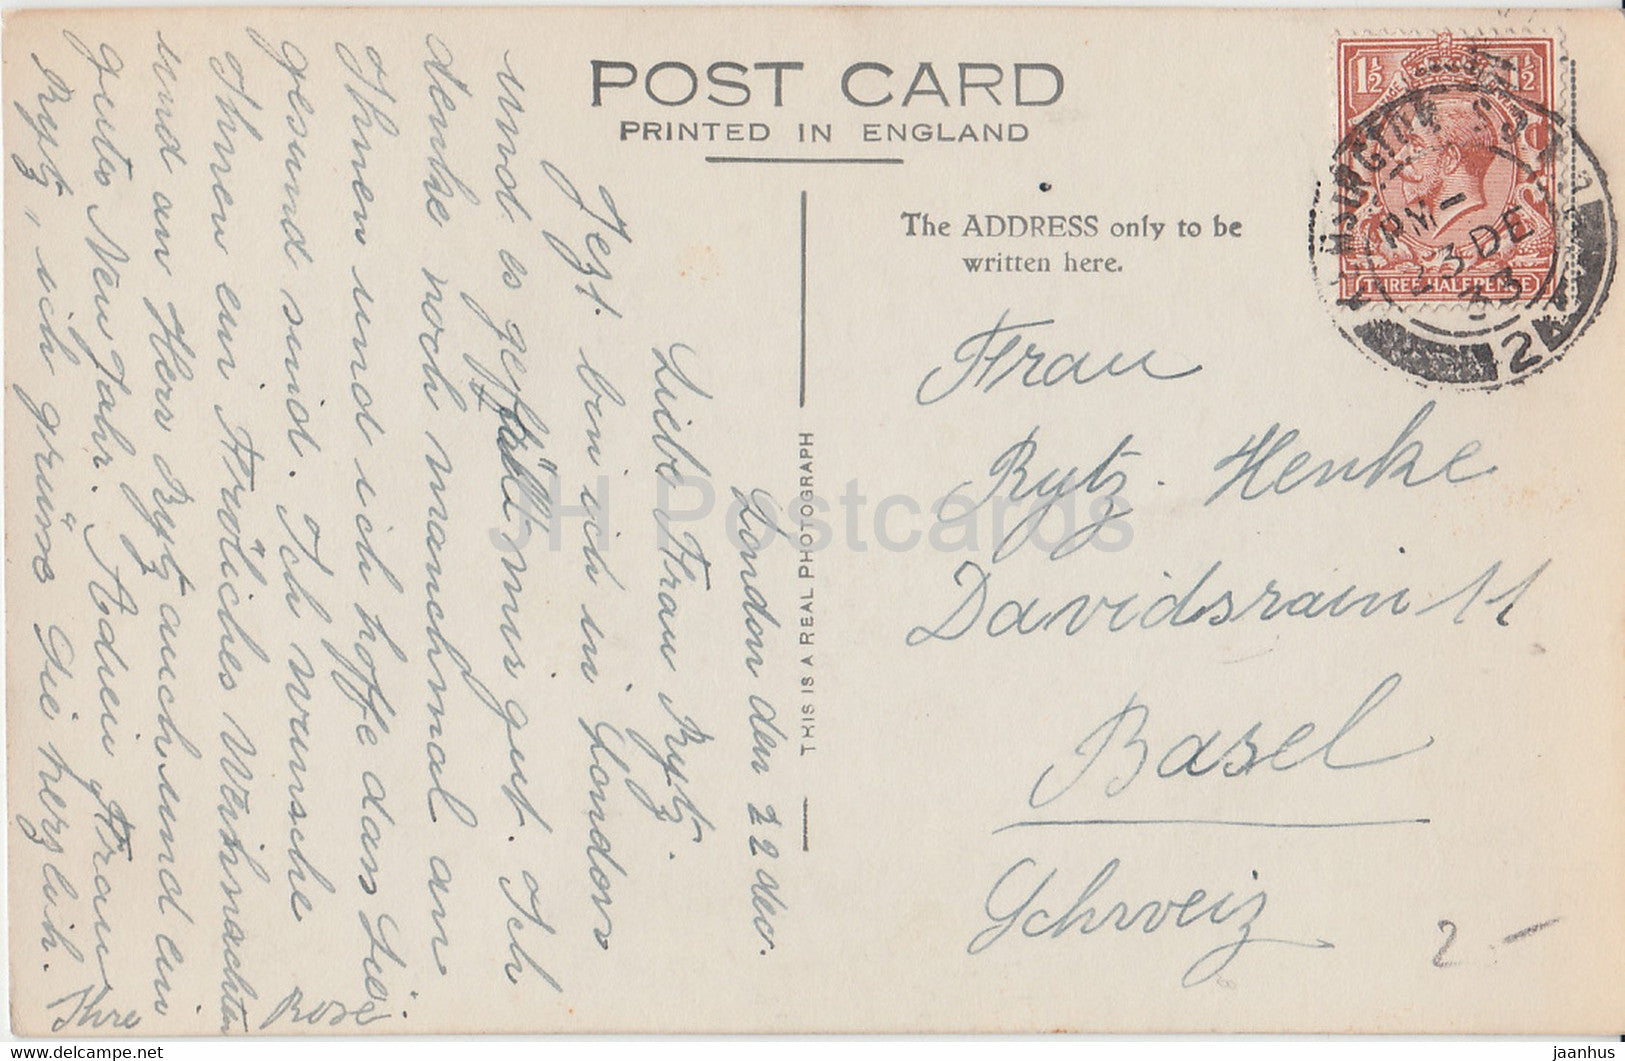 POST CARD
PRINTED IN ENGLAND
The ADDRESS only to be
written here.
THIS IS A REAL PHOTOGRAPH
1½
1½
THREE HALFPENCE
PM
23 DE
33
Frau
Rytz-Henke
Davidsrain 11
Basel
Schweiz
2.-
London den 22 dec.
Liebe Frau Rytz.
Jezt bin ich in London
und es gefällt mir gut. Ich
denke noch manchmal an
Ihnen und ich hoffe dass Sie
gesund sind. Ich wünsche
Ihnen ein Fröliches Weihnachten
und an Herr Rytz auch und ein
gutes New Jahr. Adieu Frau
Rytz, ich grüsse Sie herzlich.
Ihre Rose.
JH Postcards
jaanhus
delcampe.net